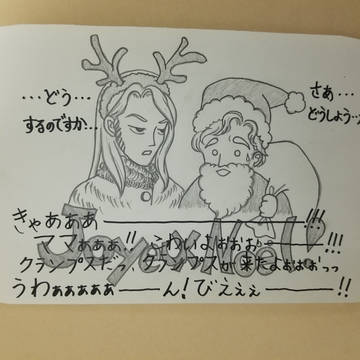 …どう…
するのですか…
さあ…
どうしよう…
きゃあああ――――――!!!
ママぁぁぁ!! こわいよぉぉぉ――!!!
クランプスだっ、クランプスが来たよぉぉぉっっ
うわぁぁぁぁぁ――ん!びえぇぇ――!!
Joyeux Noël!